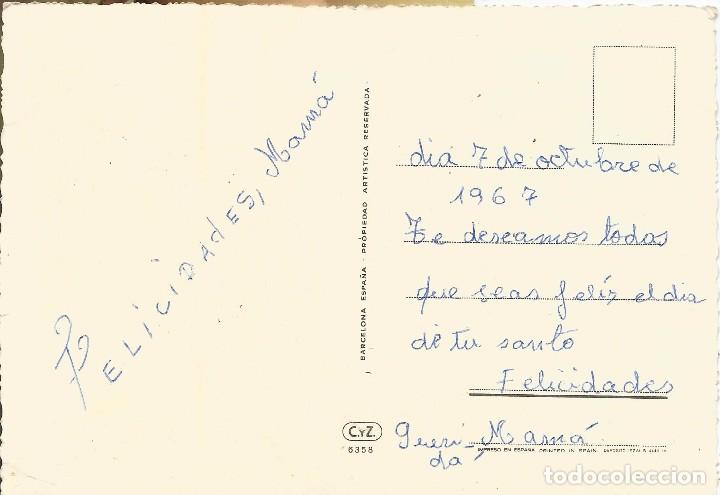 Felicidades, Mamá
BARCELONA ESPAÑA - PROPIEDAD ARTISTICA RESERVADA
dia 7 de octubre de
1967
Te deseamos todas
que seas felíz el dia
de tu santo
Felicidades
Queri-Mamá
da
C.Y.Z.
6358
IMPRESO EN ESPAÑA PRINTED IN SPAIN
todocoleccion